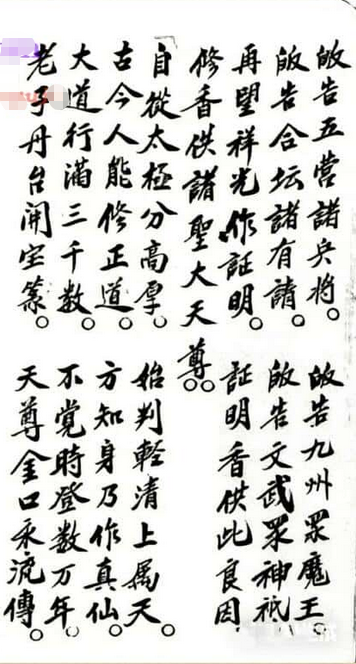 皈告五營諸兵將。皈告九州眾魔王。
皈告合坛諸有請。皈告文武眾神祇。
再望祥光作証明。証明香供此良因。
修香供諸聖大天尊。。
自從太極分高厚。始判輕清上屬天。
古今人能修正道。方知身乃作真仙。
大道行滿三千數。不覺時登数万年。
老子丹台開宝篆。天尊金口永流傳。